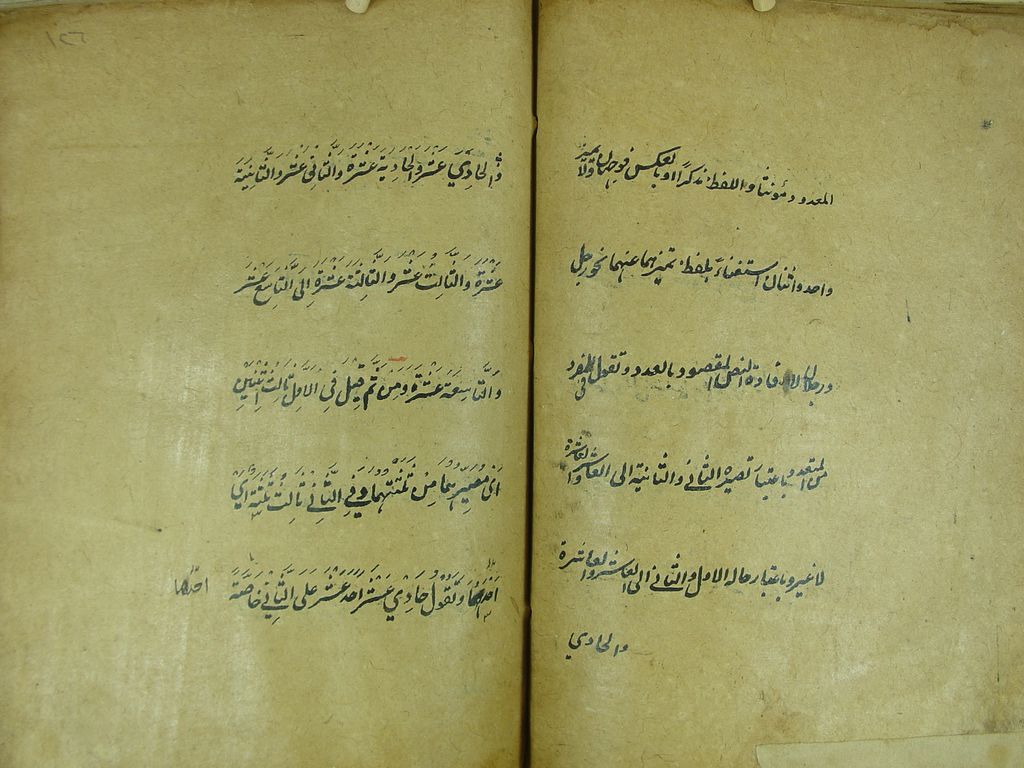 المعدود مؤنثا واللفظ مذكرا او بالعكس فوجهان ولا يميز
واحد واثنان استغناء بلفظ تميزهما عنهما نحو رجل
ورجلان لافادة النص المقصود بالعدد وتقول في المفرد
من المتعدد باعتبار تصييره الثاني والثانية الى العاشر والعاشرة
لا غير وباعتبار حاله الاول والثاني الى العاشر والعاشرة
والحادي
والحادي عشر والحادية عشرة والثاني عشر والثانية
عشرة والثالث عشر والثالثة عشرة الى التاسع عشر
والتاسعة عشرة ومن ثم قيل في الاول ثالث اثنين
اي مصيرهما من ثلثتهما وفي الثاني ثالث ثلثة اي
احدها وتقول حادي عشر احد عشر على الثاني خاصة
احدها
١٢٦